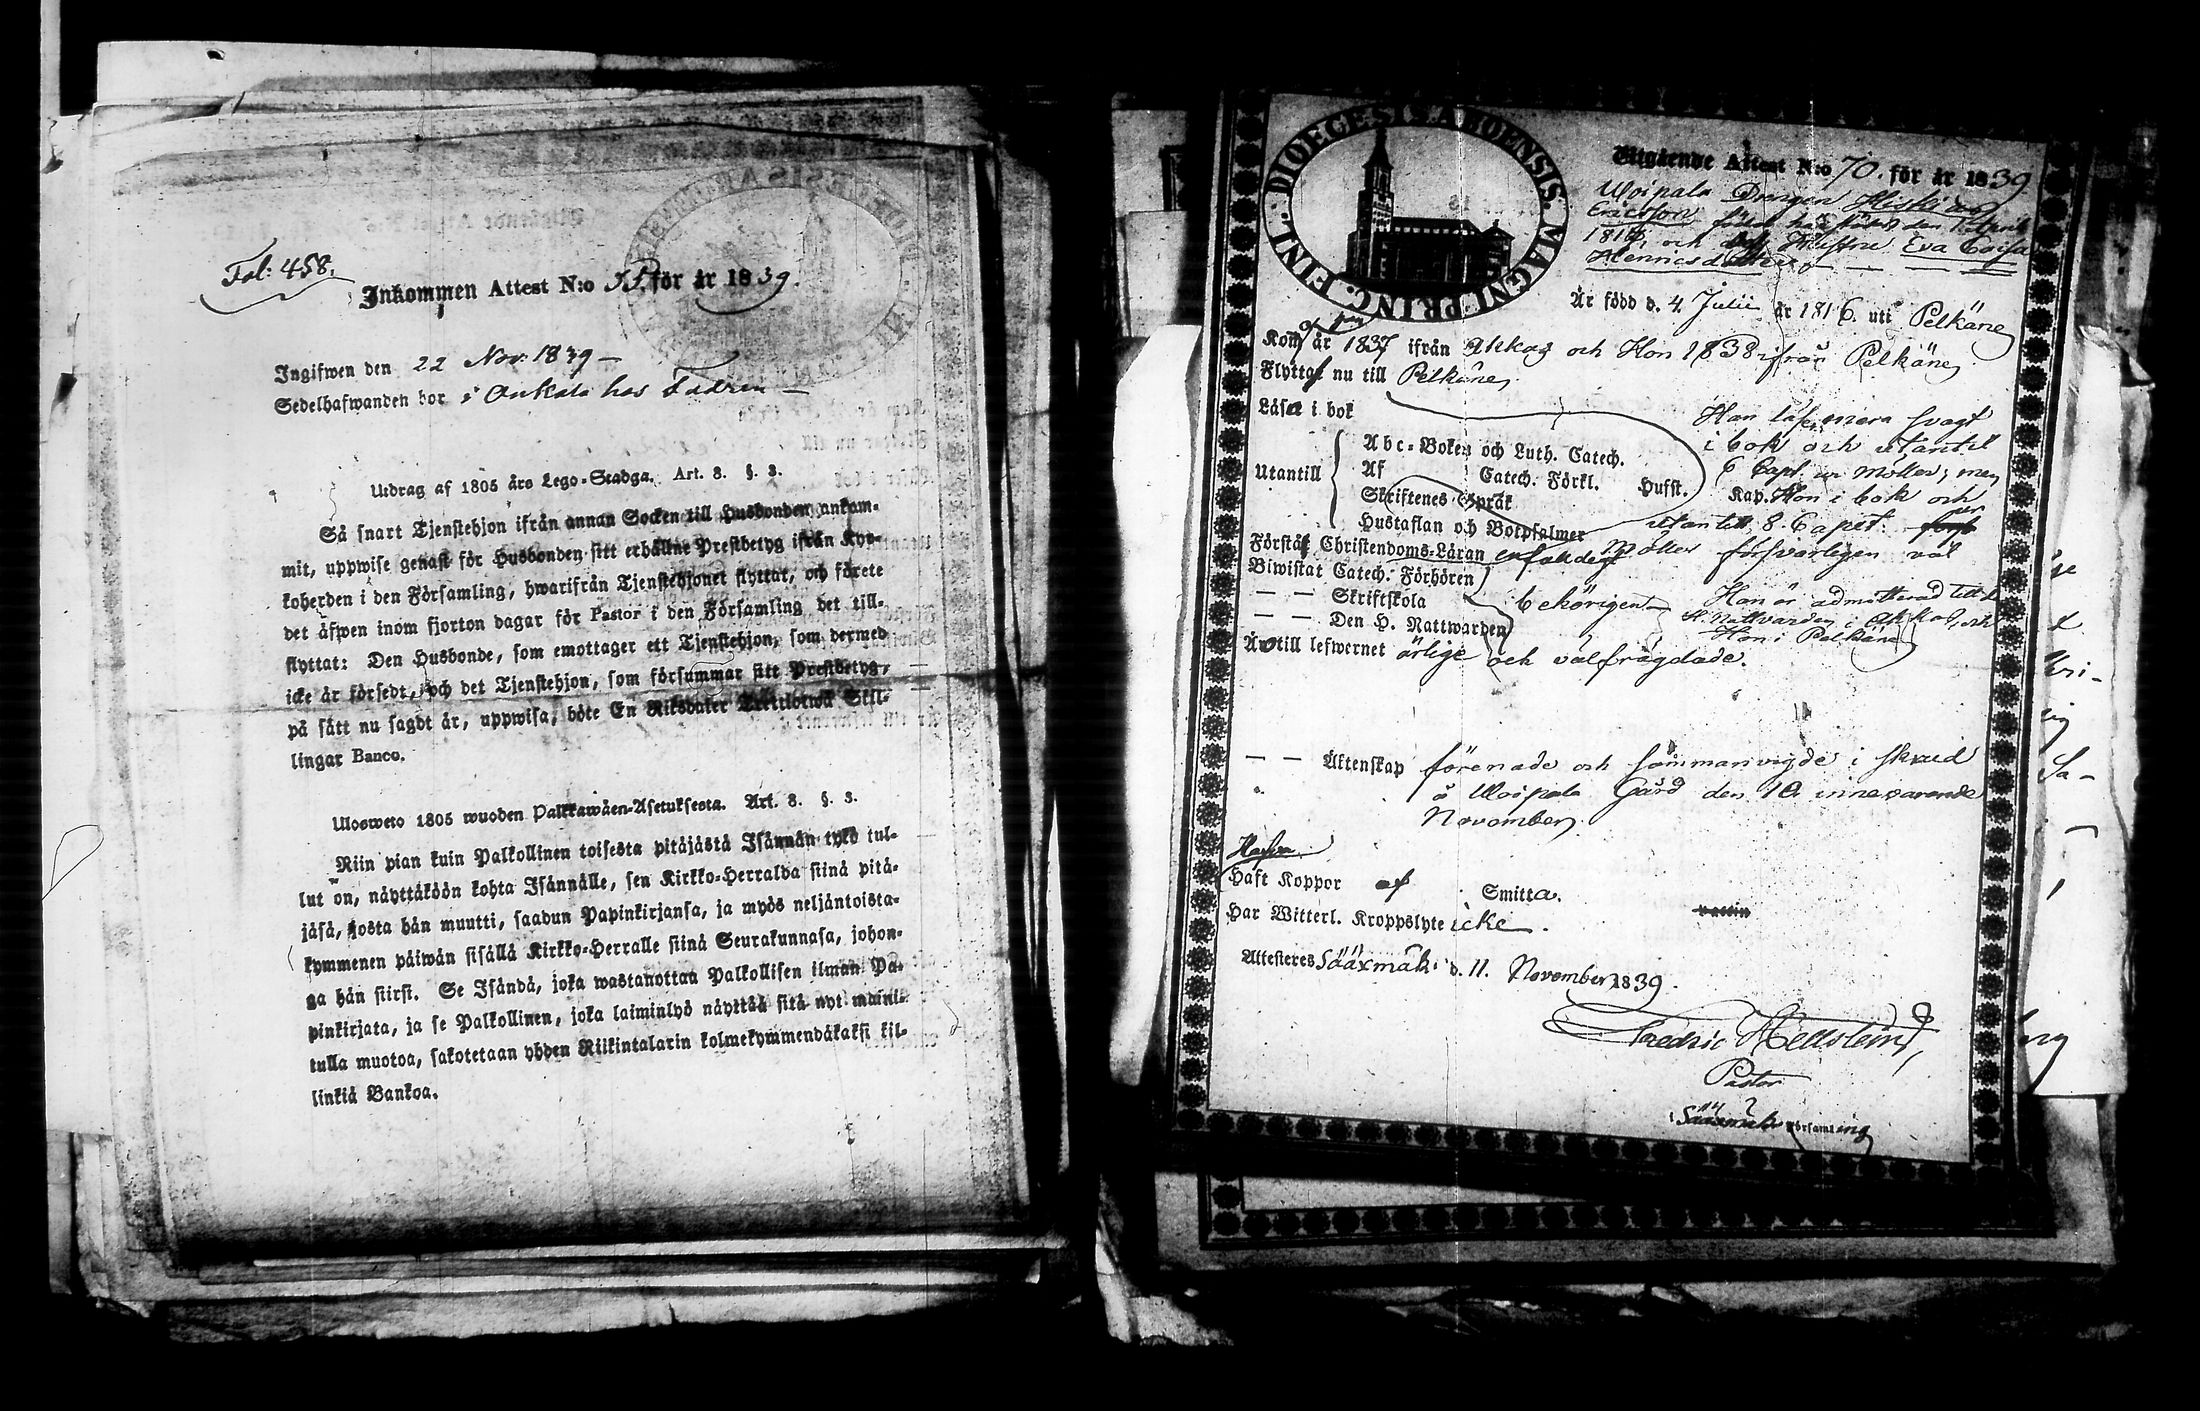 Fol: 458.
Inkommen Attest N:o 55. för år 1839.
Ingifwen den 22 Nov. 1839
Sedelhafwanden bor i Onkala hos Fadren
Utdrag af 1805 års Lego-Stadga. Art. 8. §. 3.
Så snart Tjenstehjon ifrån annan Socken till Husbonden ankom-
mit, uppwise genast för Husbonden sitt erhållne Prestbetyg ifrån Kyr-
koherden i den Församling, hwarifrån Tjenstehjonet flyttat, och förete
det äfwen inom fjorton dagar för Pastor i den Församling det till-
flyttat: Den Husbonde, som emottager ett Tjenstehjon, som dermed
icke är försedt, och det Tjenstehjon, som försummar sitt Prestbetyg,
på sätt nu sagdt är, uppwisa, böte En Riksdaler Trettiotwå Skil-
lingar Banco.
Ulosweto 1805 wuoden Palkkawäen-Asetuksesta. Art. 8. §. 3.
Niin pian kuin Palkollinen toisesta pitäjästä Isännän tykö tul-
lut on, näyttäköön kohta Isännälle, sen Kirkko-Herralda siinä pitä-
jäsä, josta hän muutti, saadun Papinkirjansa, ja myös neljäntoista-
kymmenen päiwän sisällä Kirkko-Herralle siinä Seurakunnasa, johon-
ga hän siirsi. Se Isändä, joka wastanottaa Palkollisen ilman Pa-
pinkirjata, ja se Palkollinen, joka laiminlyö näyttää sitä nyt maini-
tulla muotoa, sakotetaan yhden Riikintalarin kolmekymmendäkaksi kil-
linkiä Bankoa.
DIOECESIS ABOENSIS. MAGNI PRINC. FINL.
Utgående Attest N:o 70. för år 1839
Woipala Drengen
Ericsson född
181 och Hustru Eva Lovisa
Henricsdotter
Är född d. 4 Julii år 1816. uti Pelkäne
Kom år 1837 ifrån Akkas och Hon 1838 ifrån Pelkäne
Flyttat nu till Pelkäne
Läsa i bok
Han läser svagt
i bok och utantill
Abc-Boken och Luth. Catech.
6 Capt. ur Möller; men
Utantill
Af Catech. Förkl. Hufst. Kap. Hon i bok och
Skriftenes Språk
utantill 8. Capit. ur
Hustaflan och Botpsalmer
Förstå Christendoms-Läran enfaldigt Möller försvarligen väl
Biwistat Catech. Förhören
— — Skriftskola behörigen
Han är admitterad till
— — Den H. Nattwarden
H. Nattvarden i Akkas, och
Hon i Pelkäne
Äro till lefwernet ärlige och välfrägdade.
— — Äktenskap förenade och sammanvigde i skrud
å Woipala Gård den 10 innevarande
November.
Hafva
Haft Koppor af Smitta.
Har Witterl. Kroppslyte icke.
Attesteres Sääxmäki d. 11. November 1839.
Fredric Hellström
Pastor
i Sääxmäki Församling